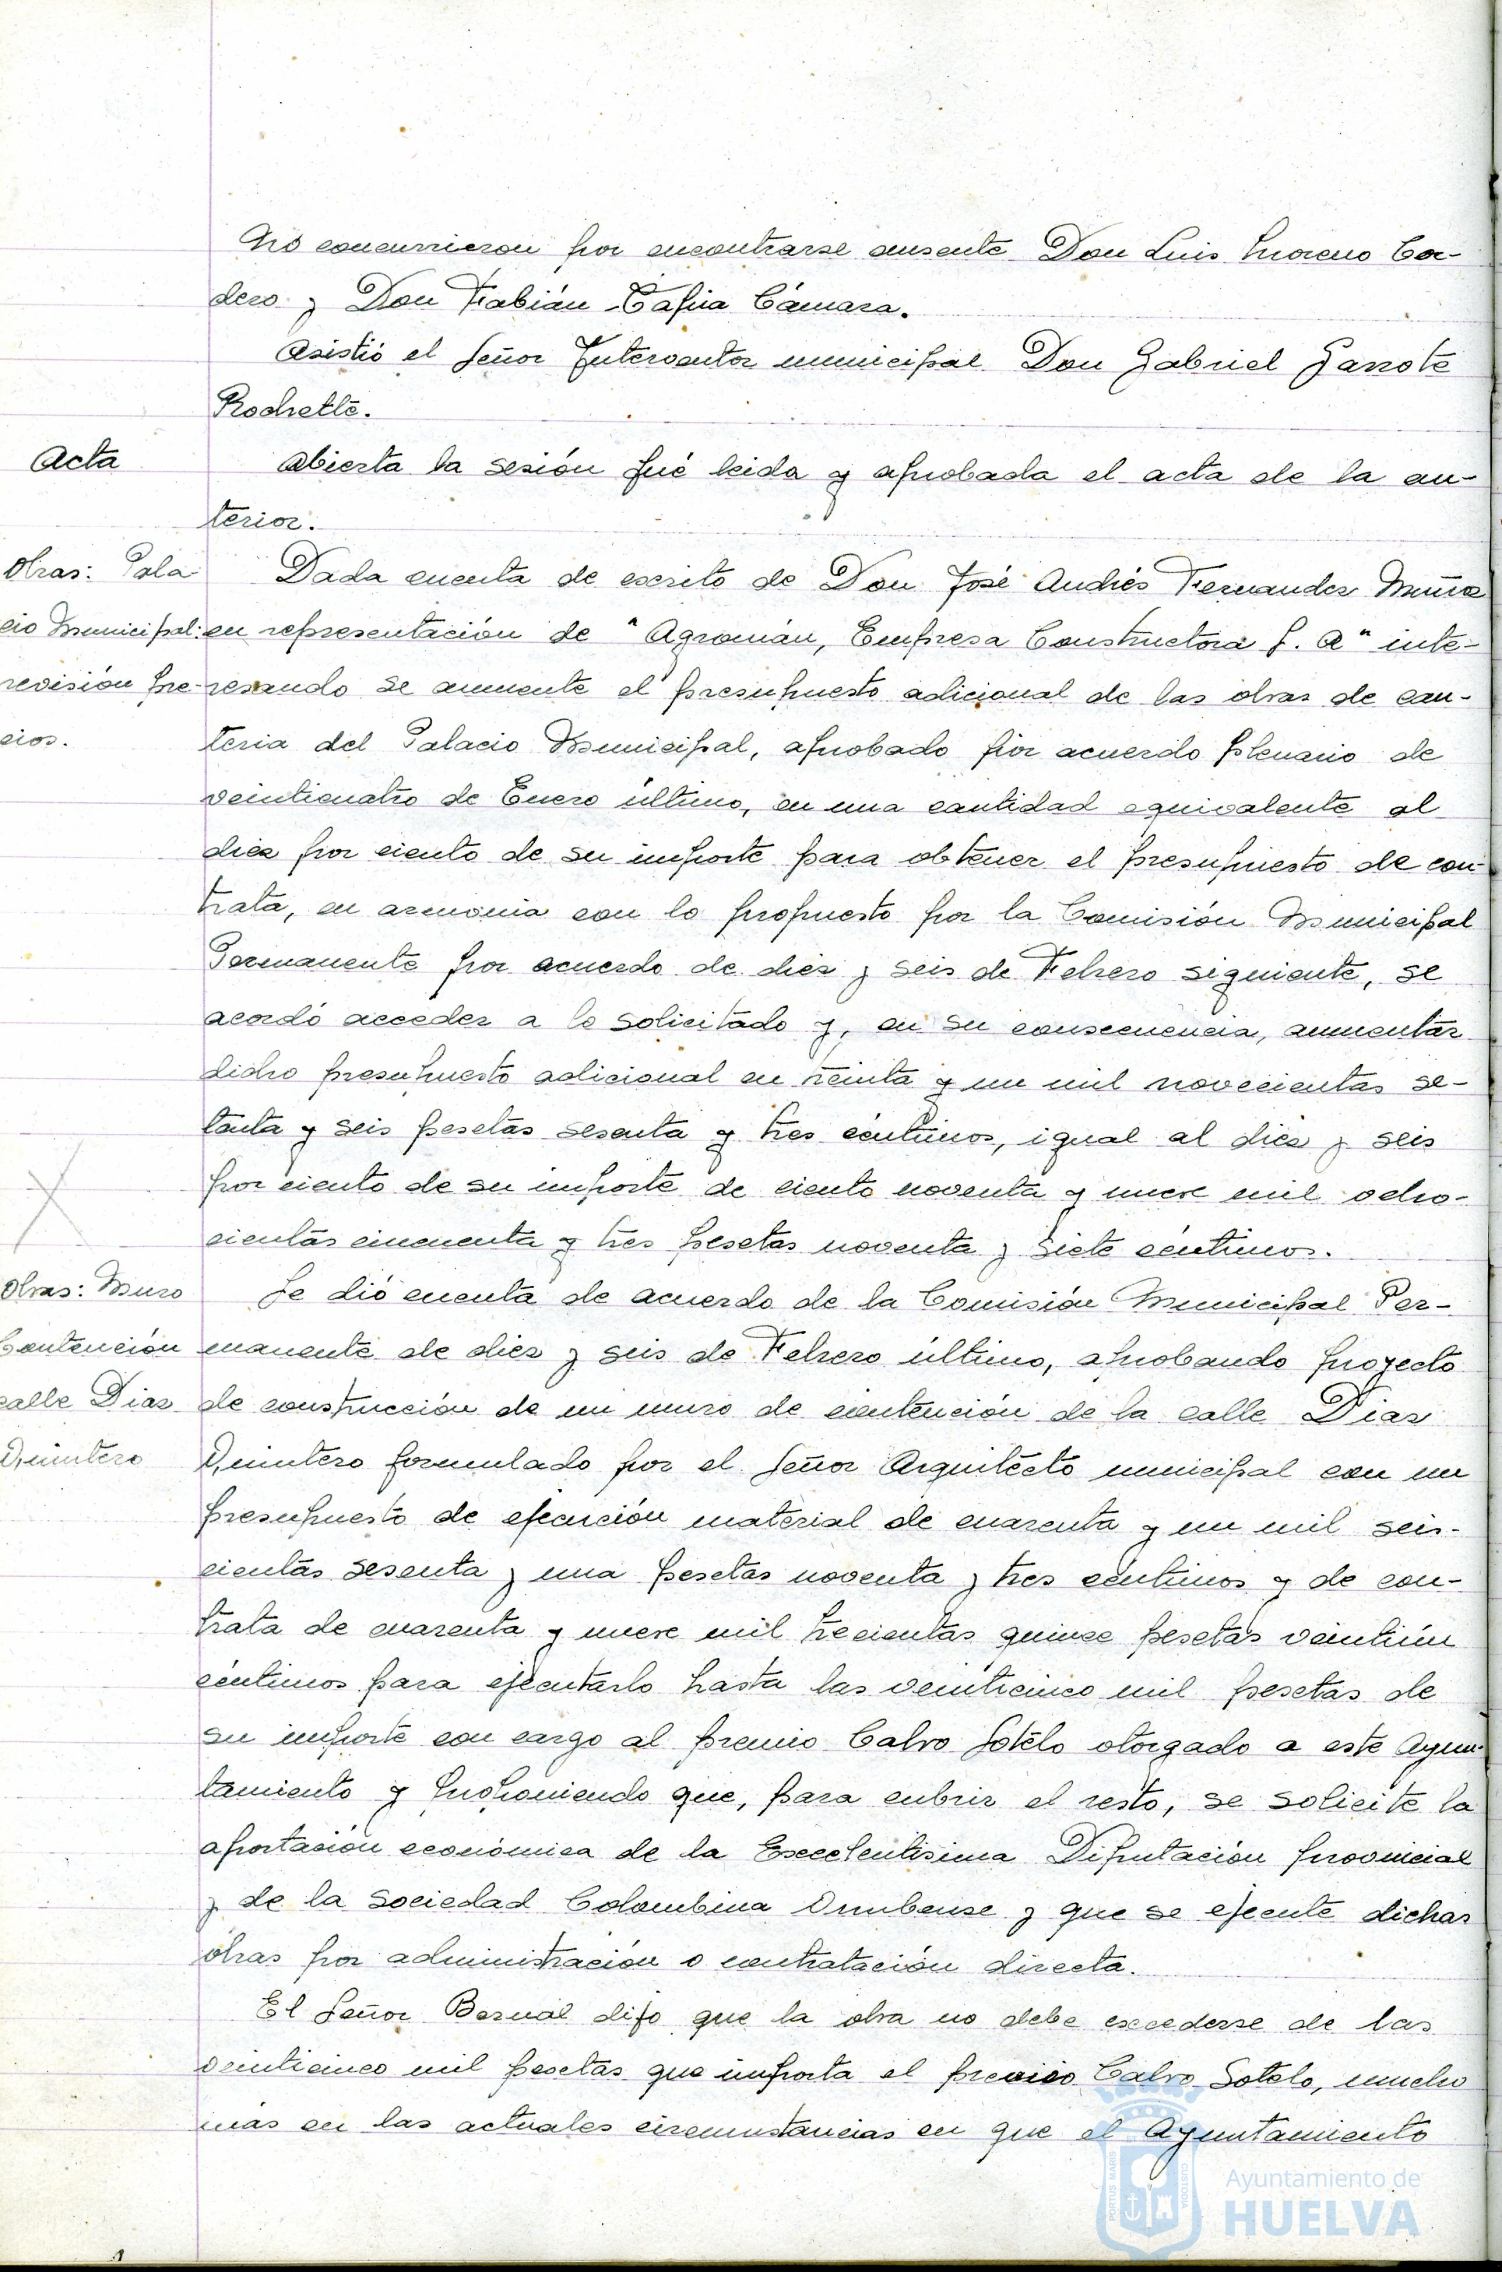 No concurrieron por encontrarse ausente Don Luis Moreno Cor-
dero y Don Fabián Tapia Cámara.
Asistió el Señor Interventor municipal Don Gabriel Garrote
Rochette.
Acta
Abierta la sesión fué leida y aprobada el acta de la an-
terior.
Obras: Pala
cio Municipal:
revisión pre-
cios.
Dada cuenta de escrito de Don José Andrés Fernandez Muñoz
en representación de "Agromán, Empresa Constructora S. A" inte-
resando se aumente el presupuesto adicional de las obras de can-
teria del Palacio Municipal, aprobado por acuerdo plenario de
veinticuatro de Enero último, en una cantidad equivalente al
diez por ciento de su importe para obtener el presupuesto de con-
trata, en armonia con lo propuesto por la Comisión Municipal
Permanente por acuerdo de diez y seis de Febrero siguiente, se
acordó acceder a lo solicitado y, en su consecuencia, aumentar
dicho presupuesto adicional en treinta y un mil novecientas se-
tenta y seis pesetas sesenta y tres céntimos, igual al diez y seis
por ciento de su importe de ciento noventa y nueve mil ocho-
cientas cincuenta y tres pesetas noventa y siete céntimos.
Obras: Muro
Contención
calle Diaz
Quintero
Se dió cuenta de acuerdo de la Comisión Municipal Per-
manente de diez y seis de Febrero último, aprobando proyecto
de construcción de un muro de contención de la calle Diaz
Quintero formulado por el Señor Arquitecto municipal con un
presupuesto de ejecución material de cuarenta y un mil seis-
cientas sesenta y una pesetas noventa y tres céntimos y de con-
trata de cuarenta y nueve mil trecientas quince pesetas veintiún
céntimos para ejecutarlo hasta las veinticinco mil pesetas de
su importe con cargo al premio Calvo Sotelo otorgado a este Ayun-
tamiento y proponiendo que, para cubrir el resto, se solicite la
aportación económica de la Excelentisima Diputación provincial
y de la Sociedad Colombina Onubense y que se ejecute dichas
obras por administración o contratación directa.
El Señor Bernal dijo que la obra no debe excederse de las
veinticinco mil pesetas que importa el premio Calvo Sotelo, mucho
más en las actuales circunstancias en que el Ayuntamiento
PORTUS MARIS
CUSTODIA
Ayuntamiento de
HUELVA